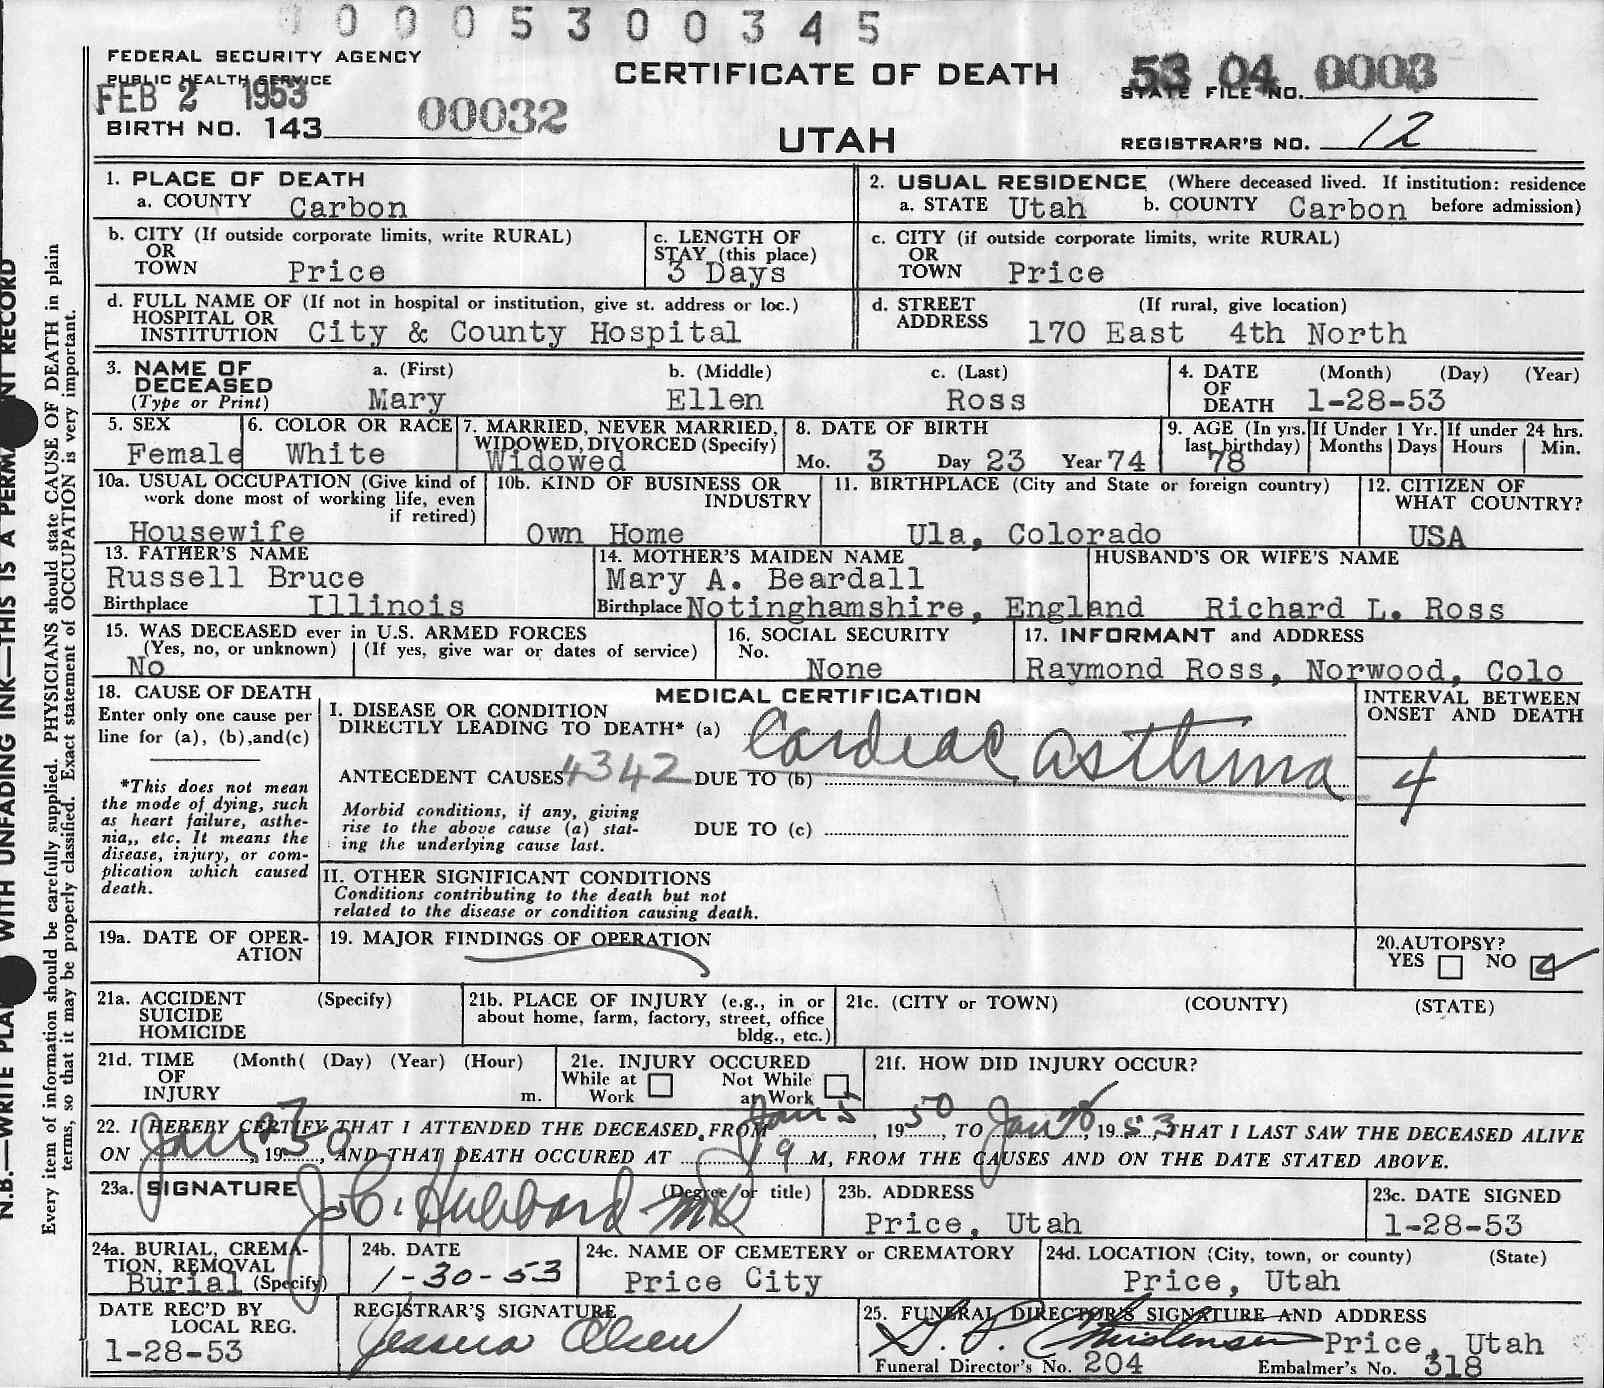 0005300345
FEDERAL SECURITY AGENCY
PUBLIC HEALTH SERVICE
FEB 2 1953
BIRTH NO. 143
00032
CERTIFICATE OF DEATH
UTAH
53 04 0003
STATE FILE NO.
REGISTRAR'S NO. 12
N.B.—WRITE PLAI WITH UNFADING INK—THIS IS A PERMA NT RECORD
Every item of information should be carefully supplied. PHYSICIANS should state CAUSE OF DEATH in plain
terms, so that it may be properly classified. Exact statement of OCCUPATION is very important.
1. PLACE OF DEATH
a. COUNTY Carbon
2. USUAL RESIDENCE (Where deceased lived. If institution: residence
a. STATE Utah b. COUNTY Carbon before admission)
b. CITY (If outside corporate limits, write RURAL)
OR
TOWN Price
c. LENGTH OF
STAY (this place)
3 Days
c. CITY (if outside corporate limits, write RURAL)
OR
TOWN Price
d. FULL NAME OF (If not in hospital or institution, give st. address or loc.)
HOSPITAL OR
INSTITUTION City & County Hospital
d. STREET (If rural, give location)
ADDRESS 170 East 4th North
3. NAME OF a. (First) b. (Middle) c. (Last)
DECEASED
(Type or Print) Mary Ellen Ross
4. DATE (Month) (Day) (Year)
OF
DEATH 1-28-53
5. SEX
Female
6. COLOR OR RACE
White
7. MARRIED, NEVER MARRIED,
WIDOWED, DIVORCED (Specify)
Widowed
8. DATE OF BIRTH
Mo. 3 Day 23 Year 74
9. AGE (In yrs.
last birthday)
78
If Under 1 Yr.
Months Days
If under 24 hrs.
Hours Min.
10a. USUAL OCCUPATION (Give kind of
work done most of working life, even
if retired)
Housewife
10b. KIND OF BUSINESS OR
INDUSTRY
Own Home
11. BIRTHPLACE (City and State or foreign country)
Ula, Colorado
12. CITIZEN OF
WHAT COUNTRY?
USA
13. FATHER'S NAME
Russell Bruce
Birthplace Illinois
14. MOTHER'S MAIDEN NAME
Mary A. Beardall
Birthplace Notinghamshire, England
HUSBAND'S OR WIFE'S NAME
Richard L. Ross
15. WAS DECEASED ever in U.S. ARMED FORCES
(Yes, no, or unknown) (If yes, give war or dates of service)
No
16. SOCIAL SECURITY
No.
None
17. INFORMANT and ADDRESS
Raymond Ross, Norwood, Colo
18. CAUSE OF DEATH
Enter only one cause per
line for (a), (b),and(c)
*This does not mean
the mode of dying, such
as heart failure, asthe-
nia,, etc. It means the
disease, injury, or com-
plication which caused
death.
MEDICAL CERTIFICATION
I. DISEASE OR CONDITION
DIRECTLY LEADING TO DEATH* (a) Cardiac asthma
ANTECEDENT CAUSES 4342 DUE TO (b)
Morbid conditions, if any, giving
rise to the above cause (a) stat-
ing the underlying cause last.
DUE TO (c)
INTERVAL BETWEEN
ONSET AND DEATH
4
II. OTHER SIGNIFICANT CONDITIONS
Conditions contributing to the death but not
related to the disease or condition causing death.
19a. DATE OF OPER-
ATION
19. MAJOR FINDINGS OF OPERATION
20.AUTOPSY?
YES NO
21a. ACCIDENT (Specify)
SUICIDE
HOMICIDE
21b. PLACE OF INJURY (e.g., in or
about home, farm, factory, street, office
bldg., etc.)
21c. (CITY or TOWN) (COUNTY) (STATE)
21d. TIME (Month( (Day) (Year) (Hour)
OF
INJURY m.
21e. INJURY OCCURED
While at Not While
Work at Work
21f. HOW DID INJURY OCCUR?
22. I HEREBY CERTIFY THAT I ATTENDED THE DECEASED, FROM Jan 5, 1950, TO Jan 28, 1953, THAT I LAST SAW THE DECEASED ALIVE
ON Jan, 19, AND THAT DEATH OCCURED AT 9 M, FROM THE CAUSES AND ON THE DATE STATED ABOVE.
23a. SIGNATURE (Degree or title)
J. C. Hubbard
23b. ADDRESS
Price, Utah
23c. DATE SIGNED
1-28-53
24a. BURIAL, CREMA-
TION, REMOVAL
Burial (Specify)
24b. DATE
1-30-53
24c. NAME OF CEMETERY or CREMATORY
Price City
24d. LOCATION (City, town, or county) (State)
Price, Utah
DATE REC'D BY
LOCAL REG.
1-28-53
REGISTRAR'S SIGNATURE
Olsen
25. FUNERAL DIRECTOR'S SIGNATURE AND ADDRESS
Christensen Price, Utah
Funeral Director's No. 204 Embalmer's No. 318